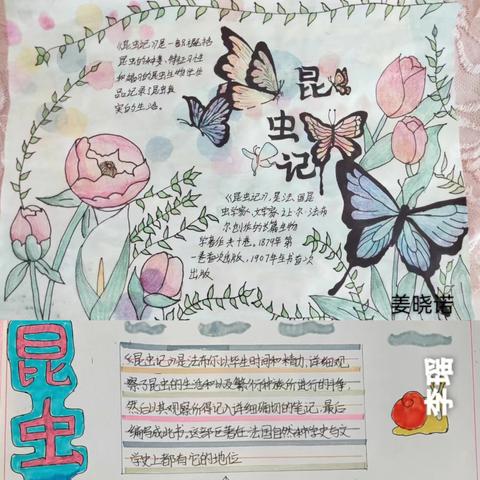 《昆虫记》是一部概括
昆虫的种类、特征、习性
和婚习的昆虫生物学作
品,记录了昆虫真
实的生活。
昆
虫
记
《昆虫记》,是法国昆
虫学家、文学家
尔·法布
尔创作的长篇生物
学著作,共十卷。1879年第
一卷首次出版,1907年全书首次
出版
姜晓诺
昆
虫
《昆虫记》是法布尔以毕生时间和精力,详细观
察了昆虫的生活和以及繁衍种族所进行的斗争,
然后以其观察所得记入详细确切的笔记,最后
编写成此书。这部巨著在法国自然科学史与文
学史上都有它的地位
李瑶